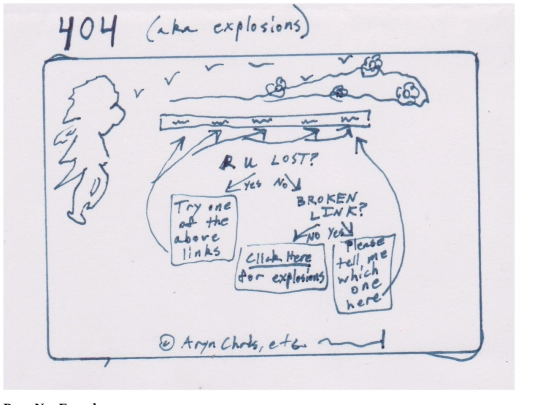 404 (aka explosions)
R U LOST?
Yes No
BROKEN
LINK?
No Yes
Try one
of the
above
links
Click Here
for explosions
Please
tell me
which
one
here
© Aryn etc.